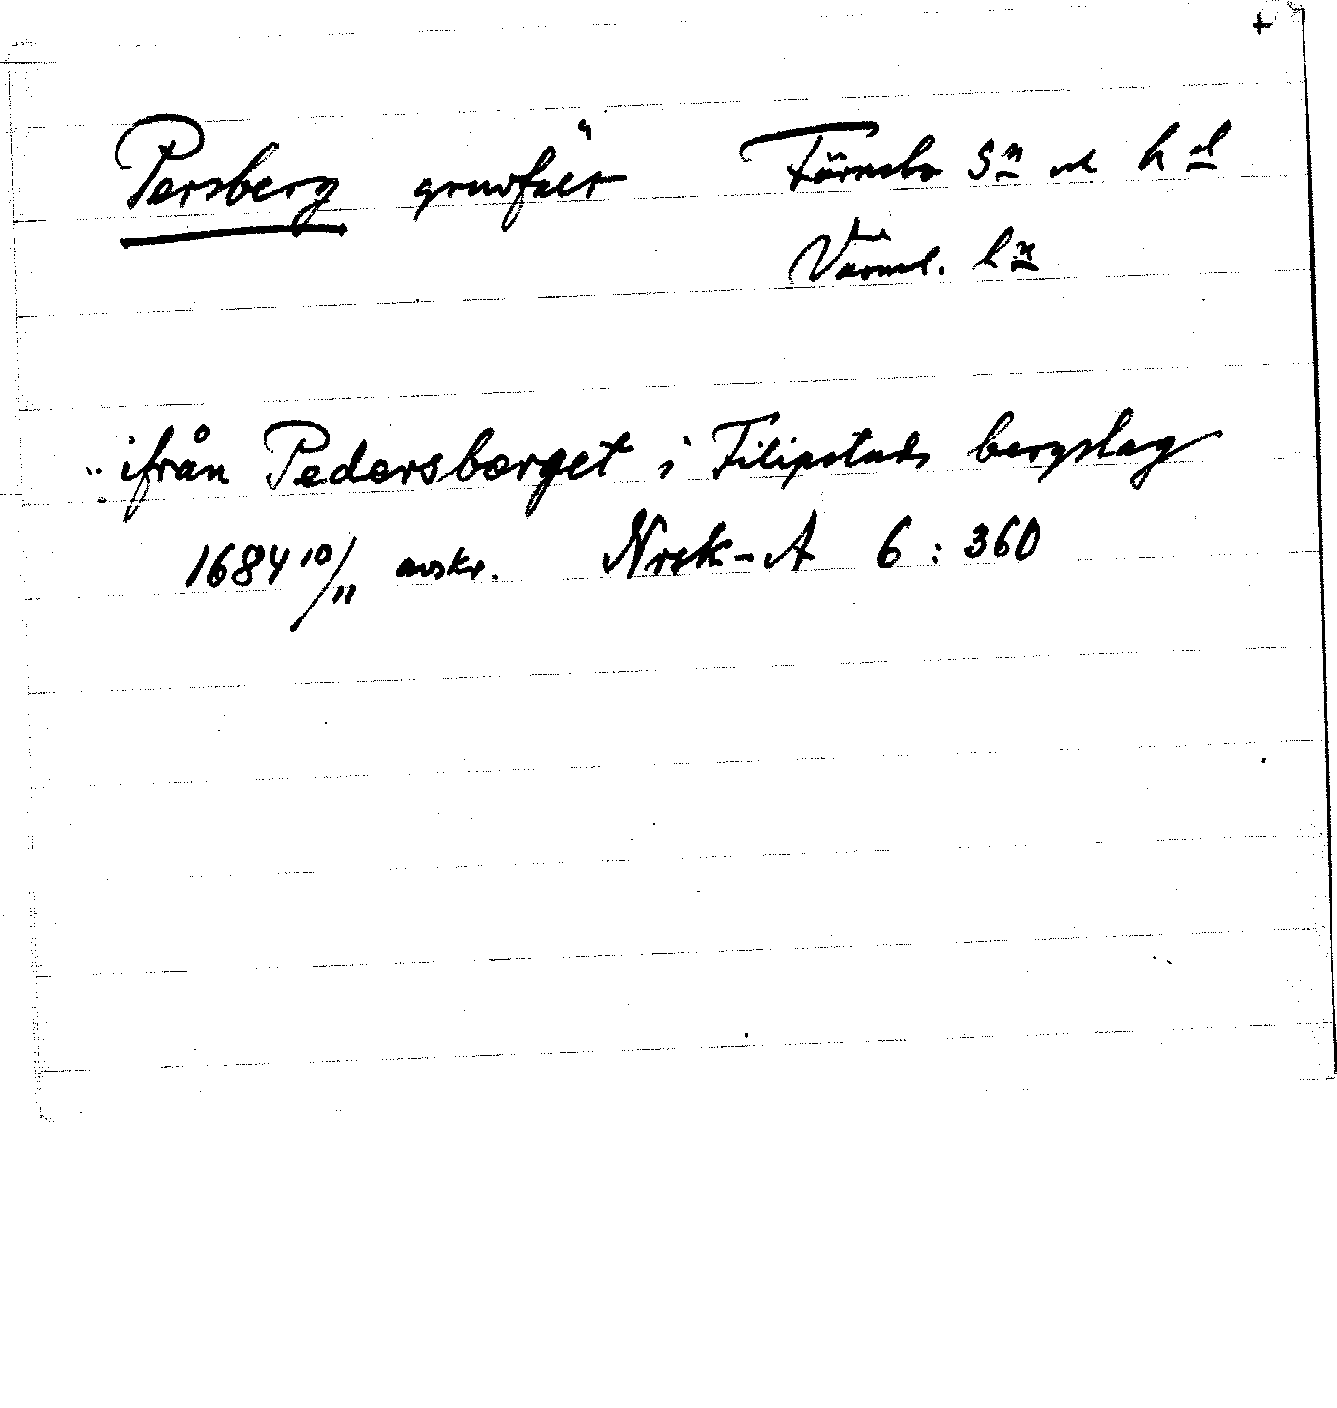 +
Persberg gruvfält Färnebo sn och hd
Värml. ln
ifrån Pedersberget i Filipstads bergslag
1684 10/11 avskr. Nrsk-A 6:360